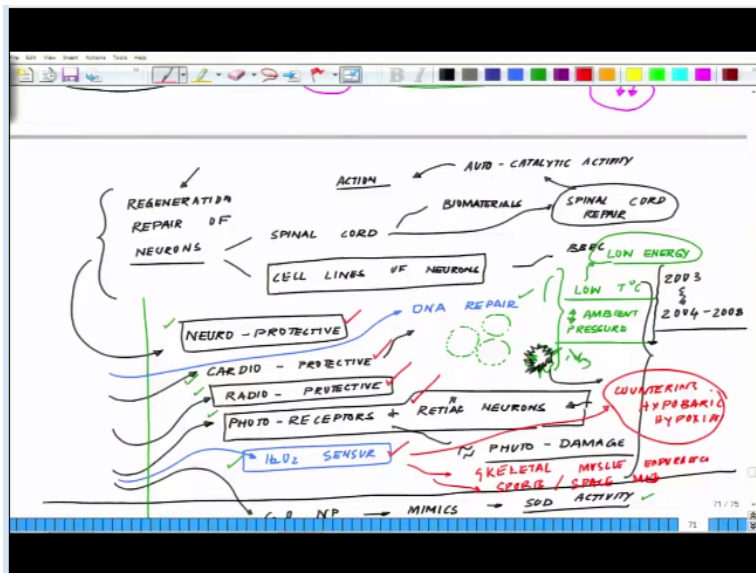 File Edit View Insert Actions Tools Help
AUTO-CATALYTIC ACTIVITY
ACTION
REGENERATION
REPAIR OF
NEURONS
BIOMATERIALS
SPINAL CORD
REPAIR
SPINAL CORD
CELL LINES OF NEURONS
BBRC
LOW ENERGY
LOW T°C
AMBIENT
PRESSURE
2003
2004-2008
DNA REPAIR
NEURO-PROTECTIVE
CARDIO-PROTECTIVE
RADIO-PROTECTIVE
PHOTO-RECEPTORS + RETINAL NEURONS
COUNTERING
HYPOBARIC
HYPOXIA
≈ PHOTO-DAMAGE
H2O2 SENSOR
SKELETAL MUSCLE ENDURANCE
SPORTS / SPACE MED
NP → MIMICS → SOD ACTIVITY
71 / 75
71